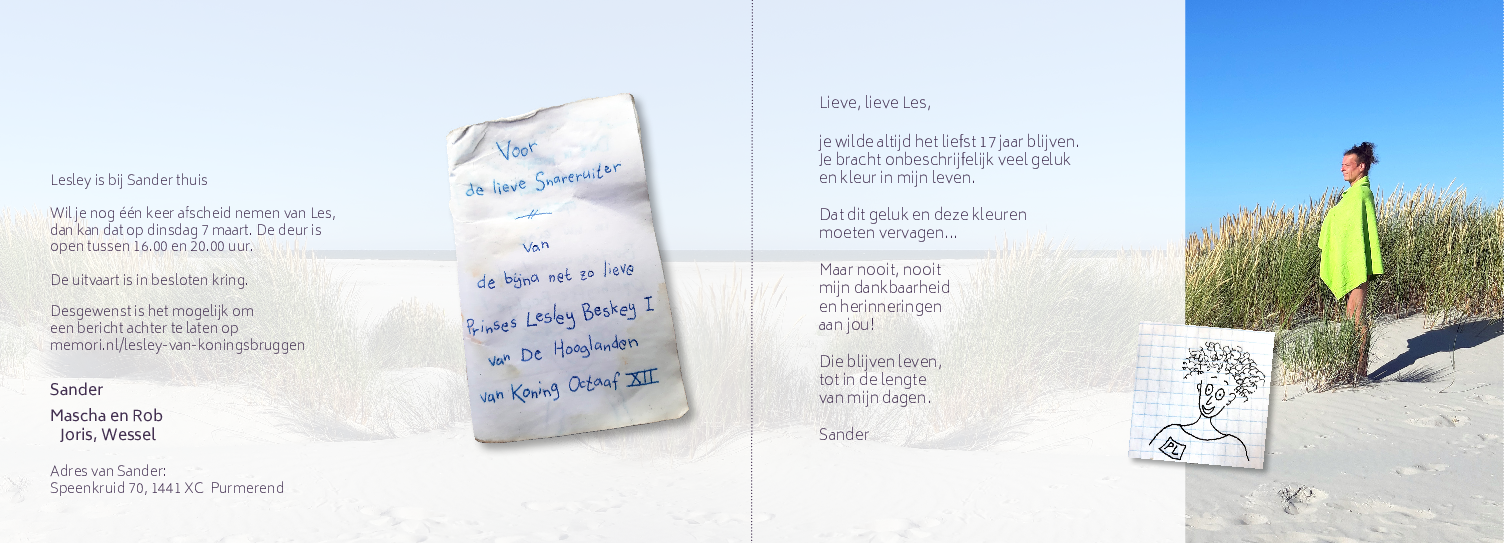 Lesley is bij Sander thuis
Wil je nog één keer afscheid nemen van Les,
dan kan dat op dinsdag 7 maart. De deur is
open tussen 16.00 en 20.00 uur.
De uitvaart is in besloten kring.
Desgewenst is het mogelijk om
een bericht achter te laten op
memori.nl/lesley-van-koningsbruggen
Sander
Mascha en Rob
Joris, Wessel
Adres van Sander:
Speenkruid 70, 1441 XC Purmerend
Voor
de lieve Snareruiter
van
de bijna net zo lieve
Prinses Lesley Beskey I
van De Hooglanden
van Koning Octaaf XII
Lieve, lieve Les,
je wilde altijd het liefst 17 jaar blijven.
Je bracht onbeschrijfelijk veel geluk
en kleur in mijn leven.
Dat dit geluk en deze kleuren
moeten vervagen...
Maar nooit, nooit
mijn dankbaarheid
en herinneringen
aan jou!
Die blijven leven,
tot in de lengte
van mijn dagen.
Sander
PL